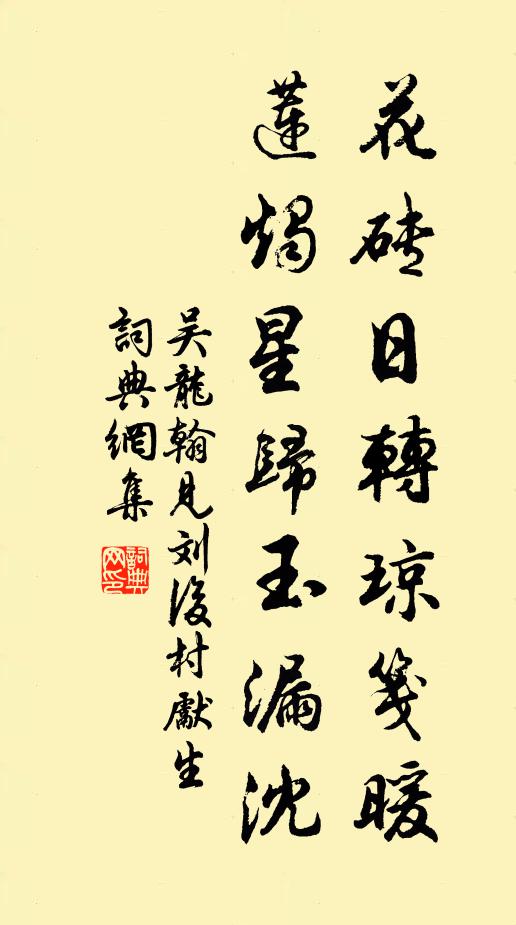 花砖日轉琼箋暖
蓮燭星歸玉漏沈
吴龍翰見刘後村獻生
詞典網集
詞典網印